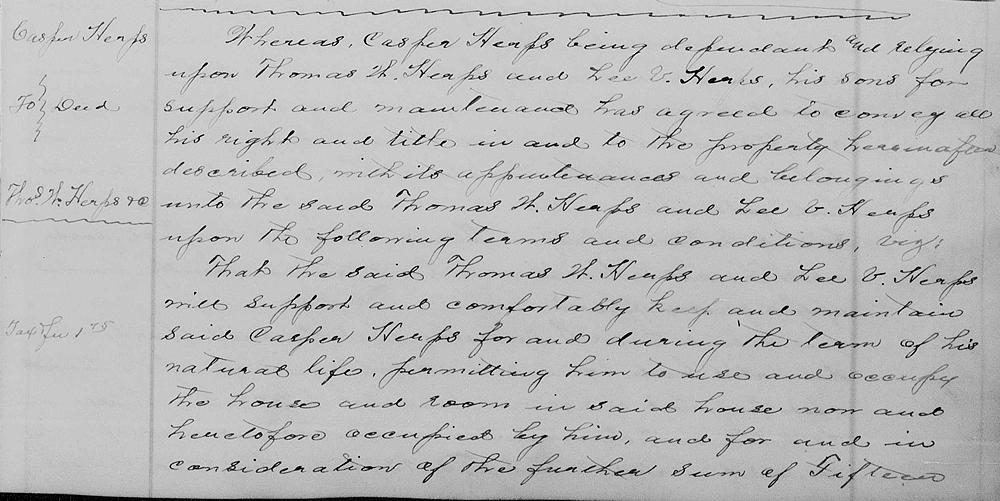 Casper Herps
To } Deed
Thos. H. Herps &c
Tax & fee 1 75
Whereas, Casper Herps being dependant and relying
upon Thomas H. Herps and Lee V. Herps, his sons for
support and maintenance has agreed to convey all
his right and title in and to the property hereinafter
described, with its appurtenances and belongings
unto the said Thomas H. Herps and Lee V. Herps
upon the following terms and conditions, viz:
That the said Thomas H. Herps and Lee V. Herps
will support and comfortably keep and maintain
said Casper Herps for and during the term of his
natural life, permitting him to use and occupy
the house and room in said house now and
heretofore occupied by him, and for and in
consideration of the further sum of Fifteen